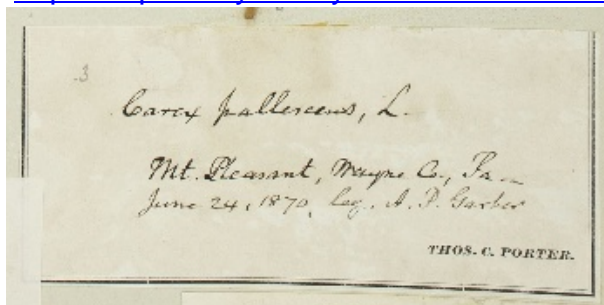 3
Carex pallescens, L.
Mt. Pleasant, Wayne Co., Pa.
June 24, 1870, Leg. A. P. Garber
THOS. C. PORTER.